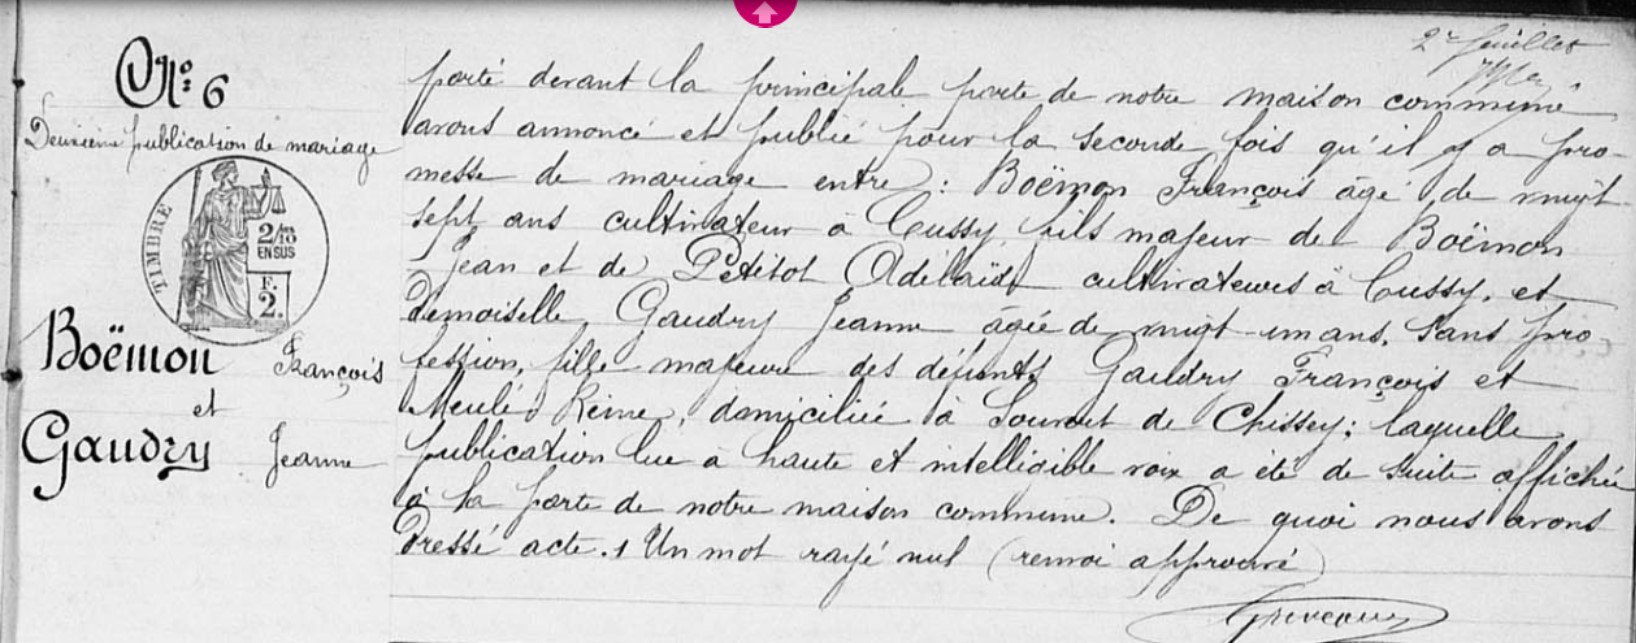 2e feuillet
No: 6
Deuxième publication de mariage
TIMBRE
2/10
EN SUS
F.
2.
Boëmon François
et
Gaudry Jeanne
porté devant la principale porte de notre maison commune
avons annoncé et publié pour la seconde fois qu'il y a pro-
messe de mariage entre : Boëmon François âgé de vingt
sept ans cultivateur à Cussy, fils majeur de Boëmon
Jean et de Petitot Adélaïde cultivateurs à Cussy, et
demoiselle Gaudry Jeanne âgée de vingt-un ans, sans pro
fession, fille majeure des défunts Gaudry François et
Meulé Reine, domiciliée à Sourout de Chissey; laquelle
publication lue à haute et intelligible voix a été de suite affichée
à la porte de notre maison commune. De quoi nous avons
dressé acte. 1 Un mot rayé nul (renvoi approuvé)